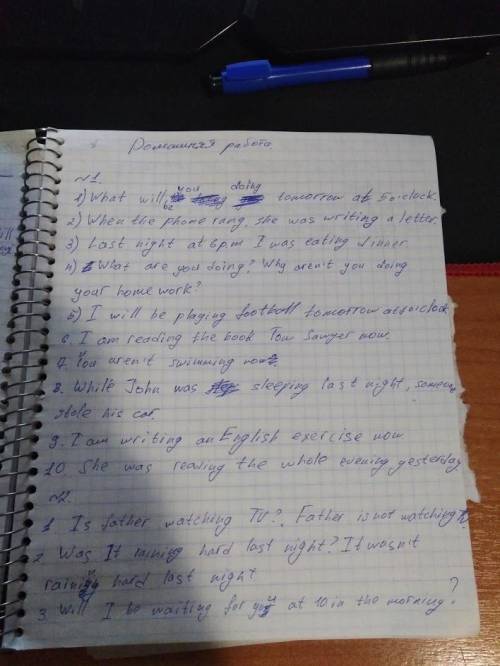 Домашняя работа
№1.
1) What will you be doing tomorrow at 5 o'clock.
2) When the phone rang, she was writing a letter
3) Last night at 6pm I was eating dinner
4) What are you doing? Why aren't you doing
your home work?
5) I will be playing football tomorrow at o'clock
6. I am reading the book Tom Sawyer now.
7. You aren't swimming now.
8. While John was sleeping last night, someone
stole his car
9. I am writing an English exercise now
10. She was reading the whole evening yesterday
№2.
1. Is father watching TV? Father is not watching
2. Was It raining hard last night? It wasn't
raining hard last night
3. Will I be waiting for you at 10 in the morning?